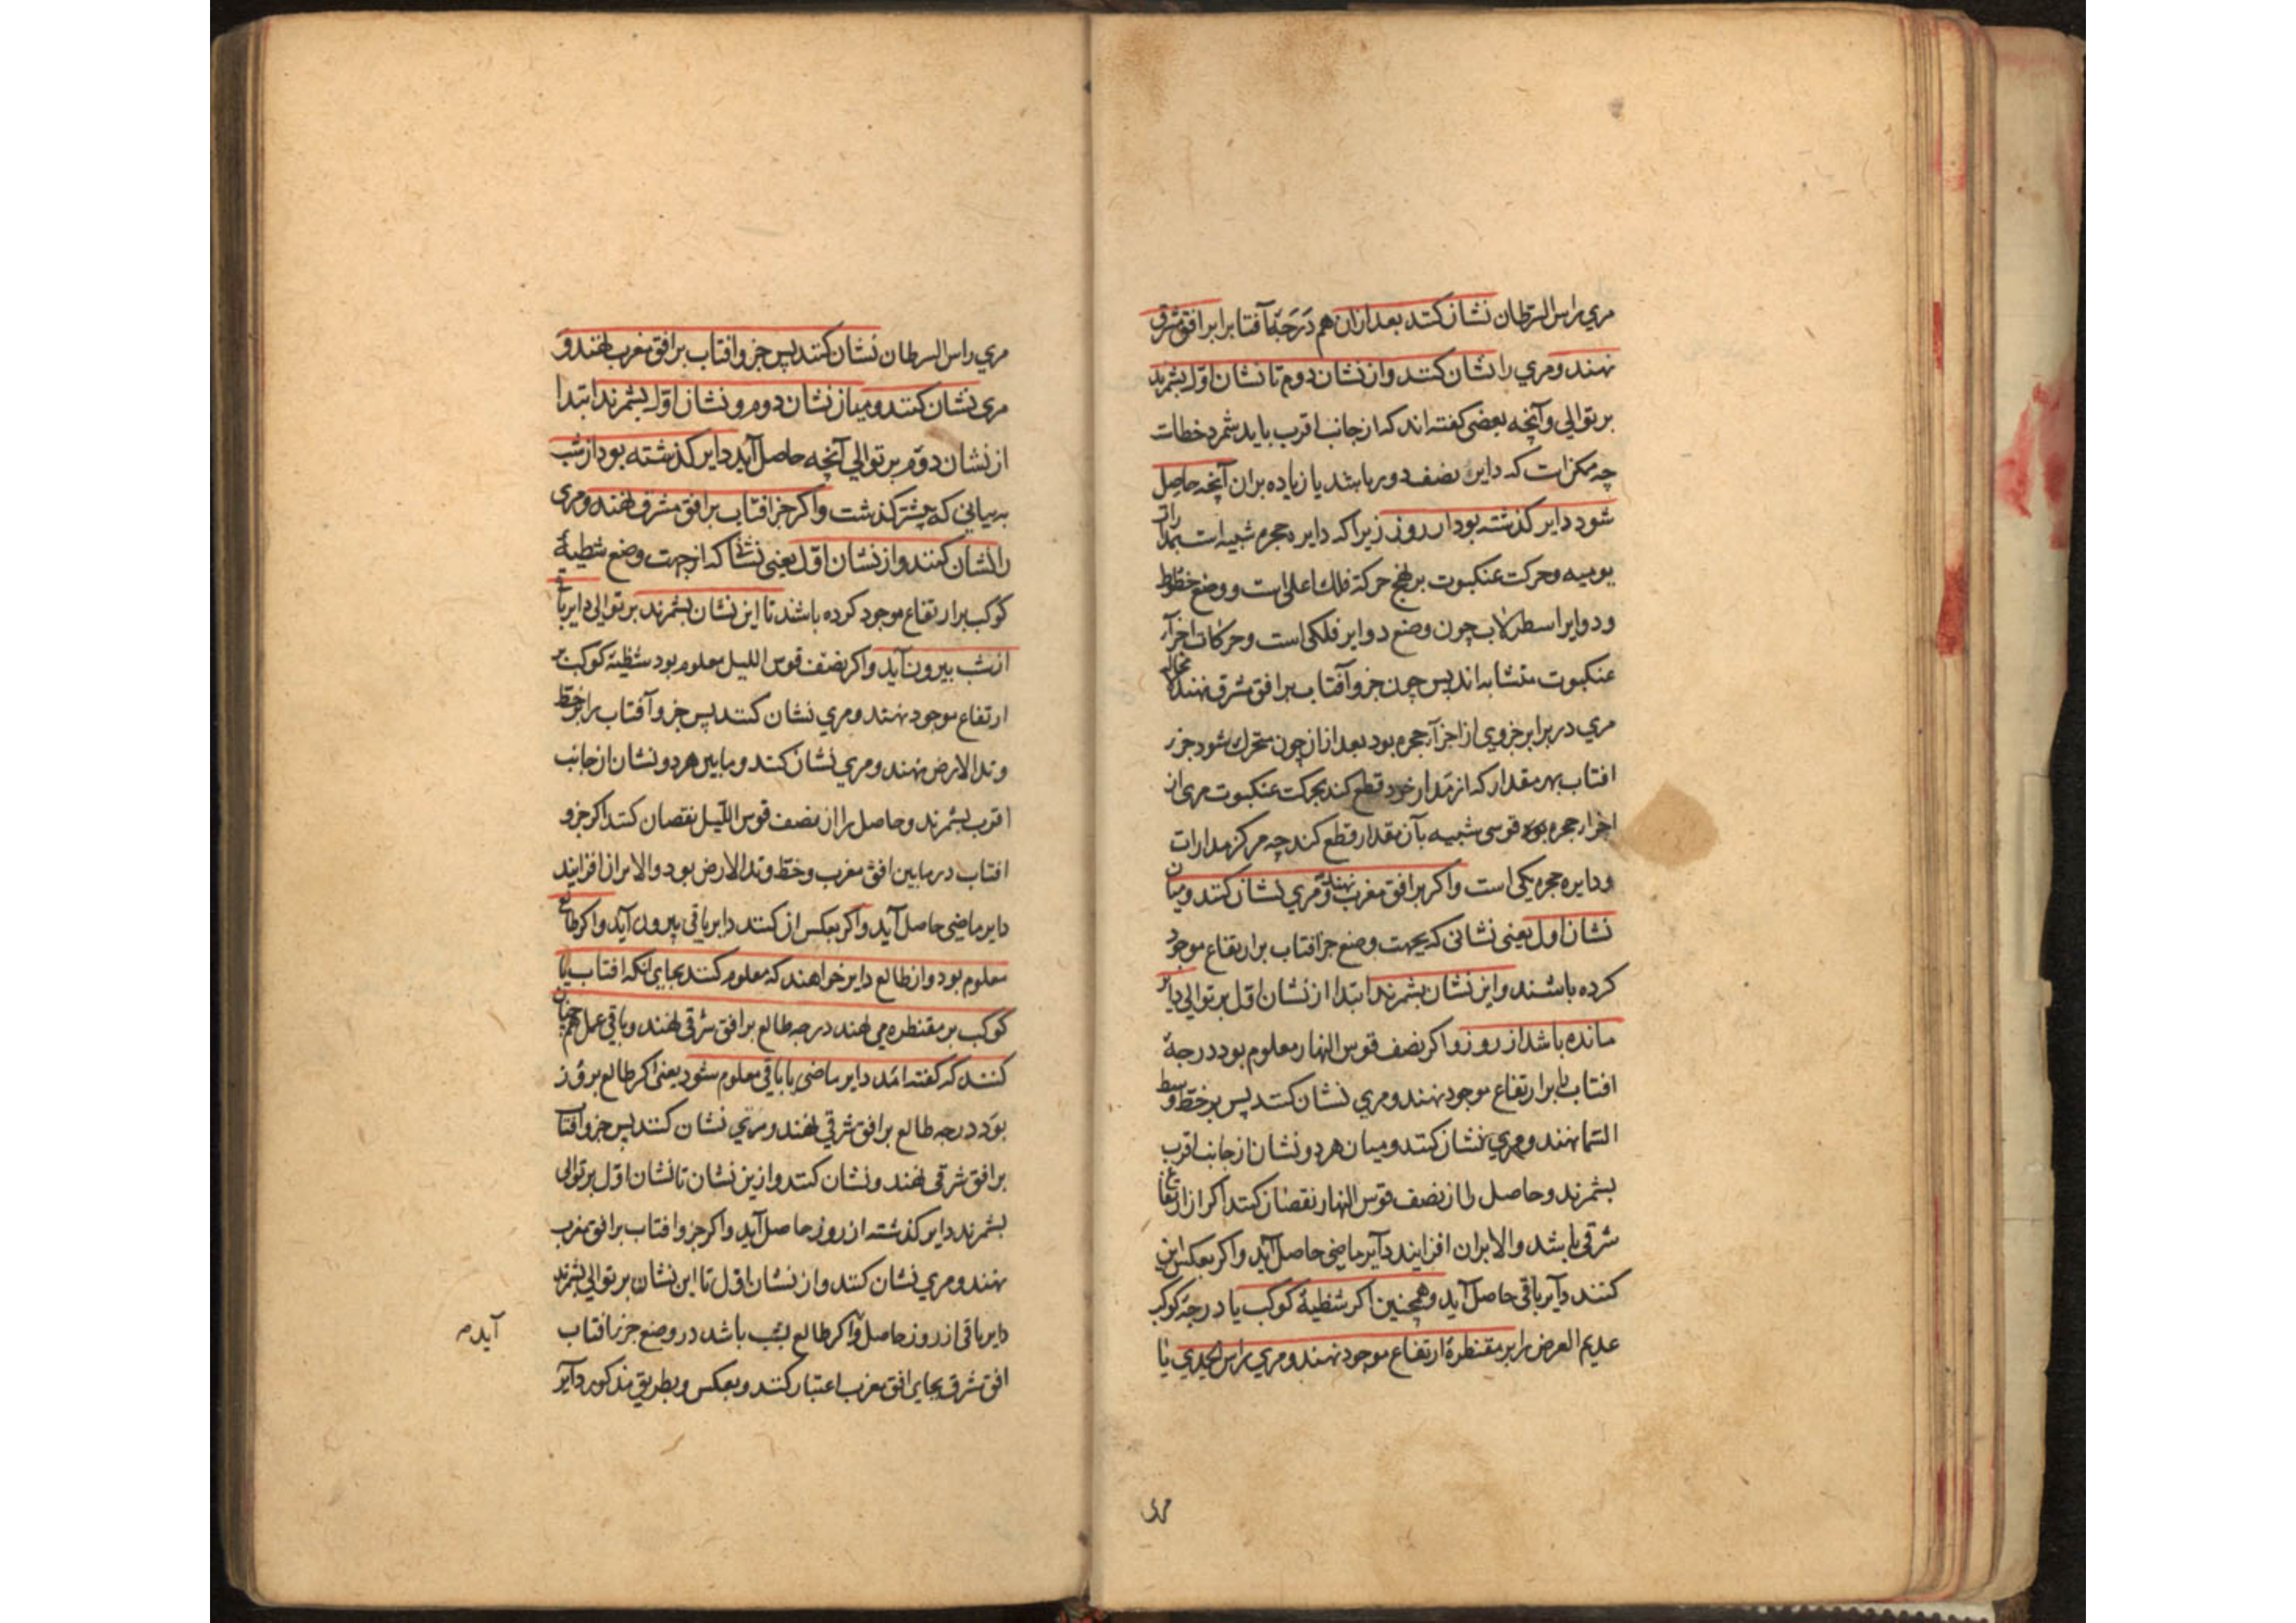 مری راس السرطان نشان کنند بعد ازان هم درجهٔ آفتاب را بر افق شرقی
نهند و مری را نشان کنند و از نشان دوم تا نشان اول بشمرند
بر توالی و آنچه بعضی کفته اند که از جانب اقرب باید شمرد خطاست
چه ممکن است که دایر نصف دور باشد یا زیاده بران آنچه حاصل
شود دایر کذشته بود از روز زیرا که دایره حجره شبیه است بمدارات
یومیه و حرکت عنکبوت بر نهج حرکة فلک اعلی است و وضع خطوط
و دوایر اسطرلاب چون وضع دوایر فلکی است و حرکات اجزآء
عنکبوت متشابه اند پس چون جزو آفتاب بر افق شرقی نهند لامحاله
مری در برابر جزوی از اجزآء حجره بود بعد ازان چون متحرک شود جزر
افتاب بهر مقدار که از مدار خود قطع کند بحرکت عنکبوت مری از
اجزاء حجره بود قوسی شبیه بآن مقدار قطع کند چه مرکز مدارات
و دایره حجره یکی است و اکر بر افق مغرب نهند و مری نشان کنند و میان
نشان اول یعنی نشانی که بجهت وضع جز افتاب بر ارتفاع موجود
کرده باشند و این نشان بشمرند ابتدا از نشان اول بر توالی دایر
مانده باشد از روز و اکر نصف قوس النهار معلوم بود درجهٔ
افتاب را بر ارتفاع موجود نهند و مری نشان کنند پس بر خط وسط
السما نهند و مری نشان کنند و میان هر دو نشان از جانب اقرب
بشمرند و حاصل را از نصف قوس النهار نقصان کنند اکر از ارتفاع
شرقی باشد والا بران افزایند دآیر ماضی حاصل آید و اکر بعکس این
کنند دآیر باقی حاصل آید و همچنین اکر شظیهٔ کوکب یا درجهٔ کوکب
عدیم العرض را بر مقنطرهٔ ارتفاع موجود نهند و مری راس الجدی یا
مری
مری راس السرطان نشان کنند پس جزو افتاب بر افق مغرب نهند و
مری نشان کنند و میان نشان دوم و نشان اول بشمرند ابتدا
از نشان دوم بر توالی آنچه حاصل آید دایر کذشته بود از شب
به بیانی که پیشتر کذشت و اکر جز افتاب بر افق مشرق نهند و مری
را نشان کنند و از نشان اول یعنی نشانی که از جهت وضع شظیهٔ
کوکب بر ارتفاع موجود کرده باشند تا این نشان بشمرند بر توالی دایر باقی
از شب بیرون آید و اکر نصف قوس اللیل معلوم بود شظیهٔ کوکب بر
ارتفاع موجود نهند و مری نشان کنند پس جزو آفتاب را بر خط
وتد الارض نهند و مری نشان کنند و ما بین هر دو نشان از جانب
اقرب بشمرند و حاصل را از نصف قوس اللیل نقصان کنند اکر جزو
افتاب در مابین افق مغرب و خط وتد الارض بود والا بران افزایند
دایر ماضی حاصل آید و اکر بعکس ان کنند دایر باقی بیرون آید و اکر طالع
معلوم بود و از طالع دایر خواهند که معلوم کنند بجای انکه افتاب یا
کوکب بر مقنطره می نهند درجه طالع بر افق شرقی نهند و باقی عمل هم چنان
کنند که کفته امد دایر ماضی یا باقی معلوم شود یعنی اکر طالع بروز
بود درجه طالع بر افق شرقی نهند و مری نشان کنند پس جزو افتاب
بر افق شرقی نهند و نشان کنند و ازین نشان تا نشان اول بر توالی
بشمرند دایر کذشته از روز حاصل آید و اکر جزو افتاب بر افق مغرب
نهند و مری نشان کنند و از نشان اول تا این نشان بر توالی بشمرند
دایر باقی از روز حاصل و اکر طالع بشب باشد در وضع جزر افتاب
آید
افق شرق بجای افق مغرب اعتبار کنند و بعکس و بطریق مذکور دآیر